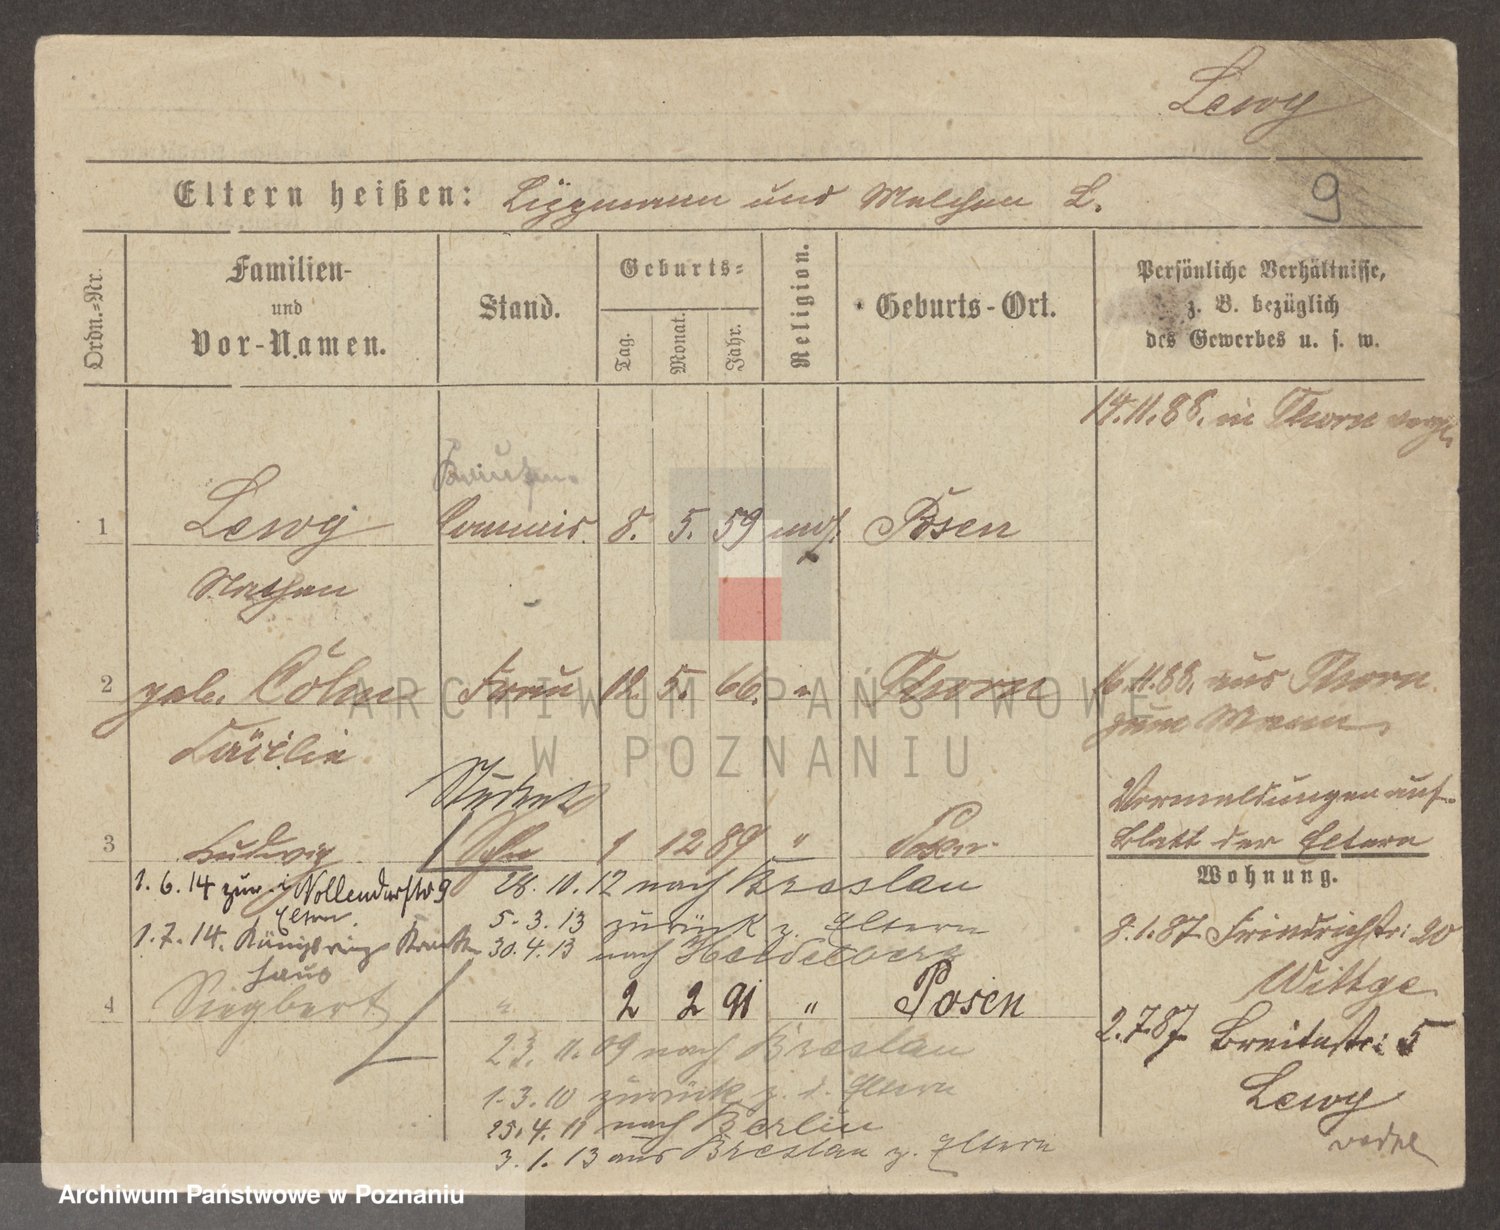 Lewy
Eltern heißen: Lippmann und Malchen L.
9
Ordn.=Nr.
Familien-
und
Vor-Namen.
Stand.
Geburts=
Tag.
Monat.
Jahr.
Religion.
Geburts-Ort.
Persönliche Verhältnisse,
z. B. bezüglich
des Gewerbes u. s. w.
14.11.88. in Thorn
1 Lewy Commis 8. 5. 59 mos. Posen
Nathan
2 geb. Cohn Frau 12. 5. 66. " Thorn 16.11.88. aus Thorn
Cäcilie
zum Mann.
Student
Vermeldungen auf
3 Ludwig Sohn 1 12 89 " Posen
Blatt der Eltern
Wohnung.
1.6.14 9
28.10.12 nach Breslau
Eltern
5.3.13 zurück z. Eltern
1.7.14. Königsring Kranken
haus
30.4.13 nach Heidelberg
8.1.87 Friedrichstr: 20
Wittge
4 Siegbert " 2 2 91 " Posen
2.7.87 Breitestr: 5
23.11.09 nach Breslau
1.3.10 zurück z. d. Eltern
Lewy
25.4.11 nach Berlin
3.1.13 aus Breslau z. Eltern
ARCHIWUM PAŃSTWOWE
W POZNANIU
Archiwum Państwowe w Poznaniu